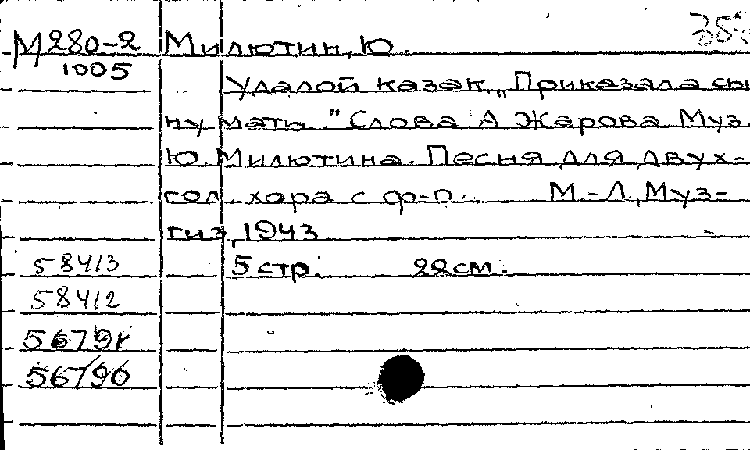 М280-2 Милютин, Ю.
1005
Удалой казак. „Приказала сы
ну мати." Слова А Жарова Муз.
Ю. Милютина. Песня для двух-
гол. хора с ф-п. М.-Л, Муз-
гиз, 1943
58413 5 стр. 22см.
58412
56791
56790